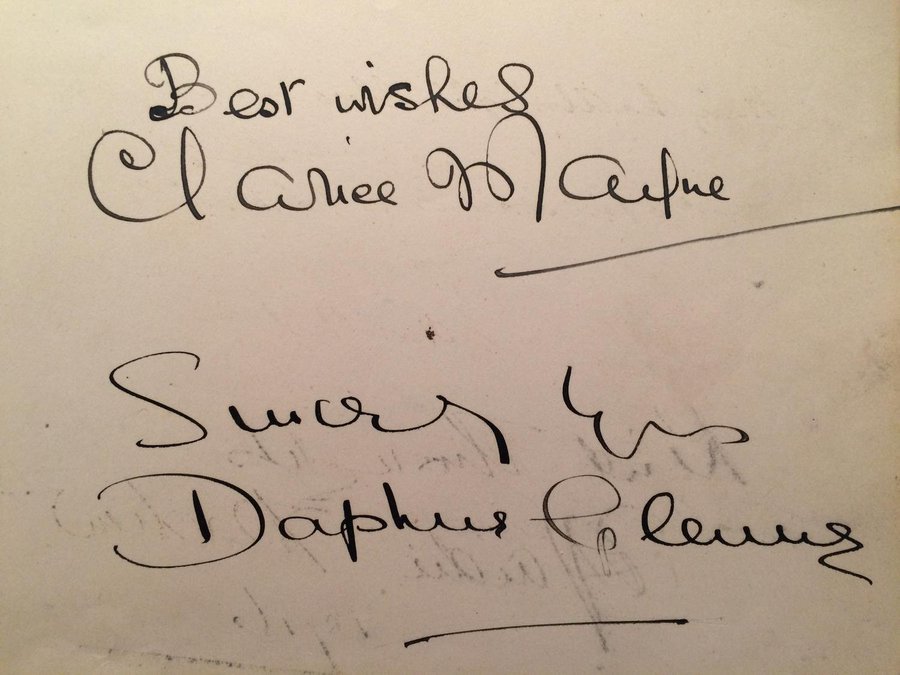 Best wishes
Clarice Mayne
Sincerely Yrs
Daphne Glenne